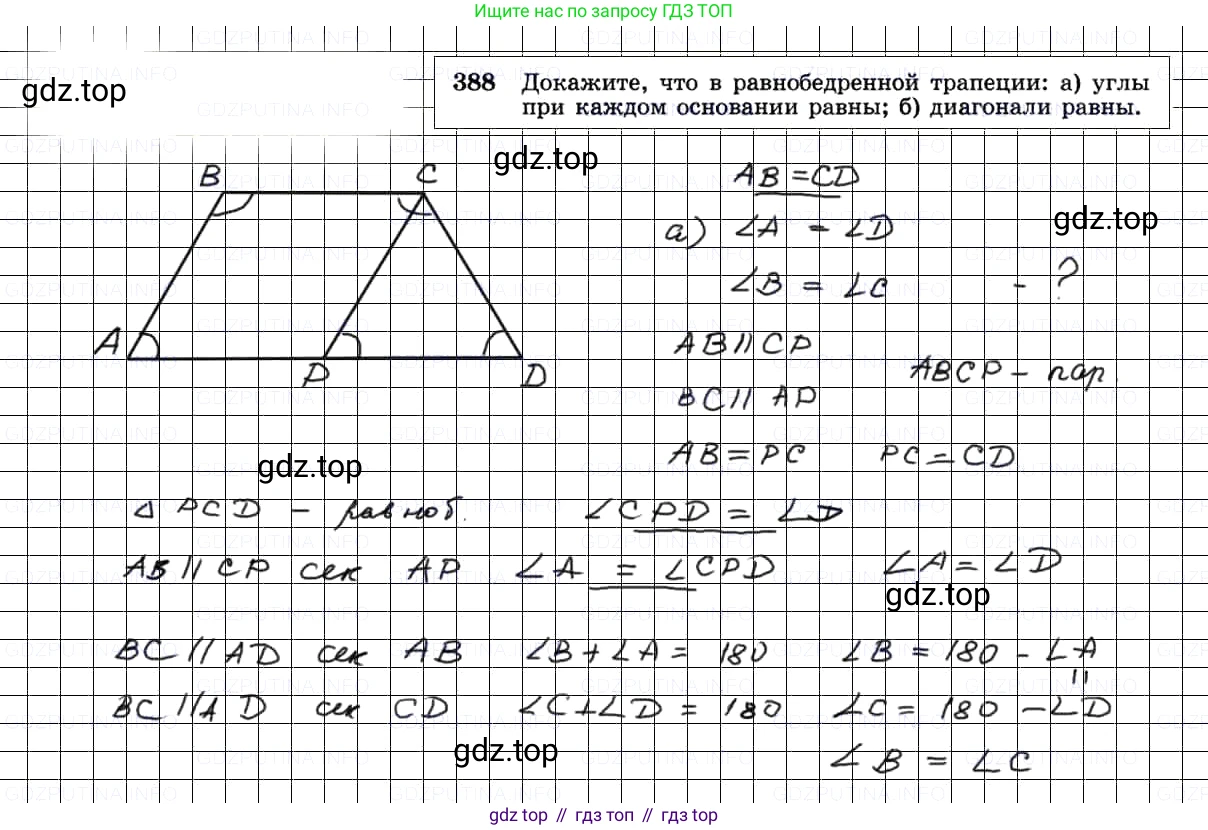 Ищите нас по запросу ГДЗ ТОП
gdz.top
388 Докажите, что в равнобедренной трапеции: а) углы
при каждом основании равны; б) диагонали равны.
gdz.top
B C
AB = CD
gdz.top
а) ∠A = ∠D
∠B = ∠C - ?
A P D
AB || CP
ABCP - пар.
BC || AP
gdz.top
AB = PC PC = CD
△ PCD - равноб. ∠CPD = ∠D
AB || CP сек AP ∠A = ∠CPD ∠A = ∠D
gdz.top
BC || AD сек AB ∠B + ∠A = 180 ∠B = 180 - ∠A
||
BC || AD сек CD ∠C + ∠D = 180 ∠C = 180 - ∠D
gdz.top
∠B = ∠C
gdz топ // гдз топ // гдз top
GDZPUTINA.INFO